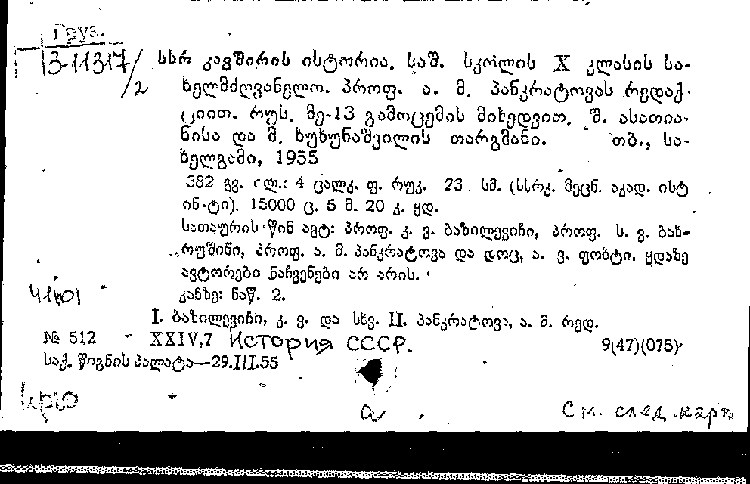 Груз.
3-11317/2
სსრ კავშირის ისტორია. საშ. სკოლის X კლასის სა-
ხელმძღვანელო. პროფ. ა. მ. პანკრატოვას რედაქ-
ციით. რუს. მე-13 გამოცემის მიხედვით. შ. ასათია-
ნისა და მ. ხუხუნაშვილის თარგმანი. თბ., სა-
ხელგამი, 1955
382 გვ. 4 ცალკ. ფ. რუკ. 23 სმ. (სსრკ. მეცნ. აკად. ისტ
ინ-ტი). 15000 ც. 5 მ. 20 კ. ყდ.
სათაურის წინ ავტ: პროფ. კ. ვ. ბაზილევიჩი, პროფ. ს. ვ. ბახ-
რუშინი, პროფ. ა. მ. პანკრატოვა და დოც. ა. ვ. ფოხტი. ყდაზე
ავტორები ნაჩვენები არ არის.
კანზე: ნაწ. 2.
I. ბაზილევიჩი, კ. ვ. და სხვ. II. პანკრატოვა, ა. მ. რედ.
№ 512 XXIV,7 История СССР. 9(47)(075)
საქ. წიგნის პალატა—29.III.55
См. след. карт